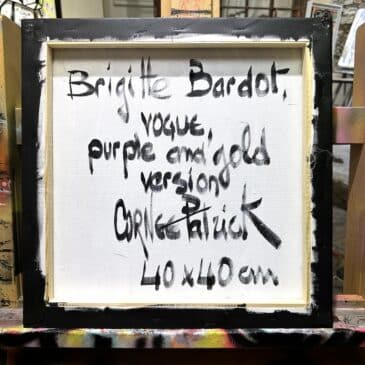 Brigitte Bardot,
vogue,
purple and gold
version
CORNEE Patrick
40x40 cm